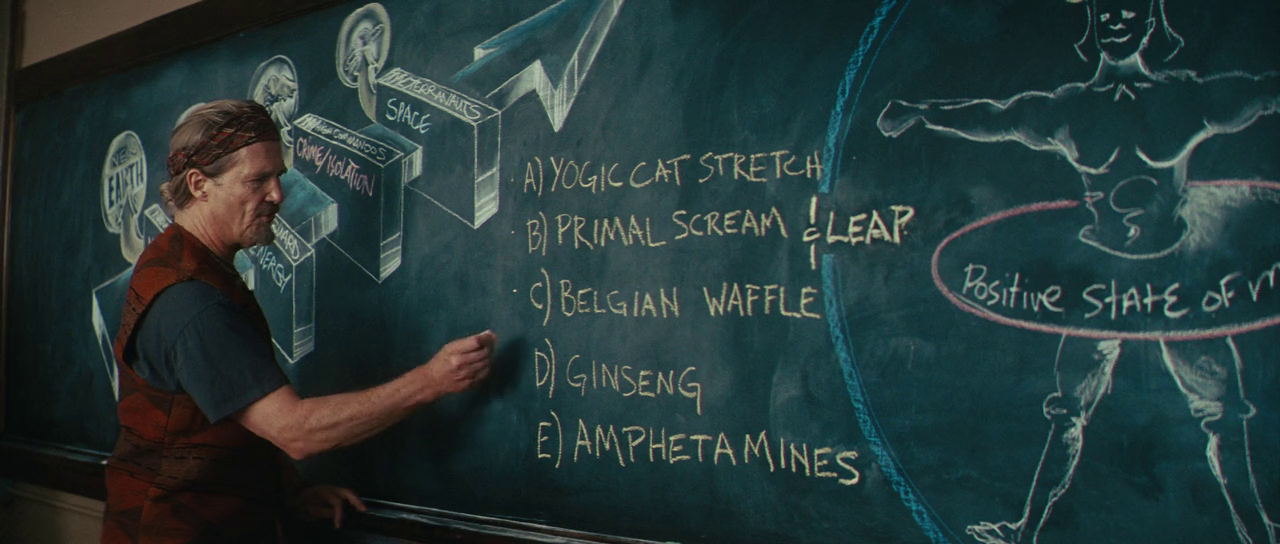 NEW
EARTH
ENERGY
CRIME/ISOLATION
SPACE
A) YOGIC CAT STRETCH
B) PRIMAL SCREAM & LEAP
C) BELGIAN WAFFLE
D) GINSENG
E) AMPHETAMINES
Positive STATE OF